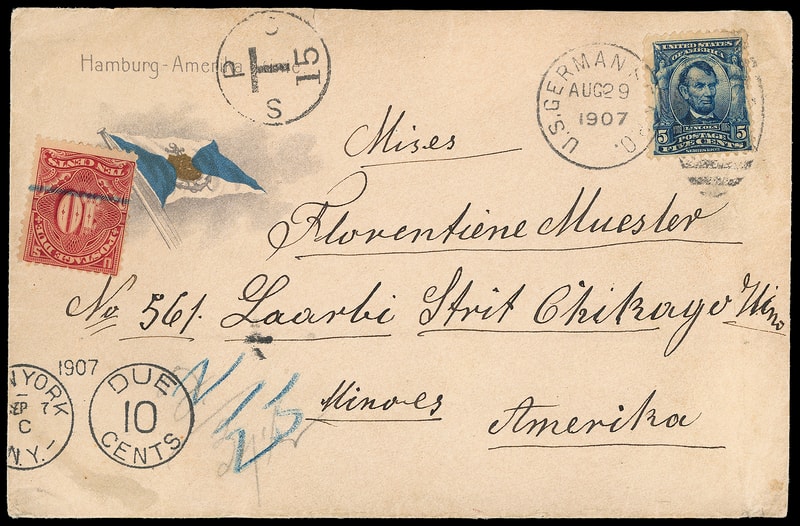 Hamburg-Amerika
P S 15 S
U.S. GERMAN
AUG 29
1907
UNITED STATES
OF AMERICA
LINCOLN
5 POSTAGE 5
FIVE CENTS
SERIES 1902
Mises
Florentiene Muesler
No 561. Laarbi Strit Chikago
Minoes
Amerika
TEN CENTS
10
POSTAGE DUE
U S
1907
N YORK
SEP 7
C
N.Y.
DUE
10
CENTS